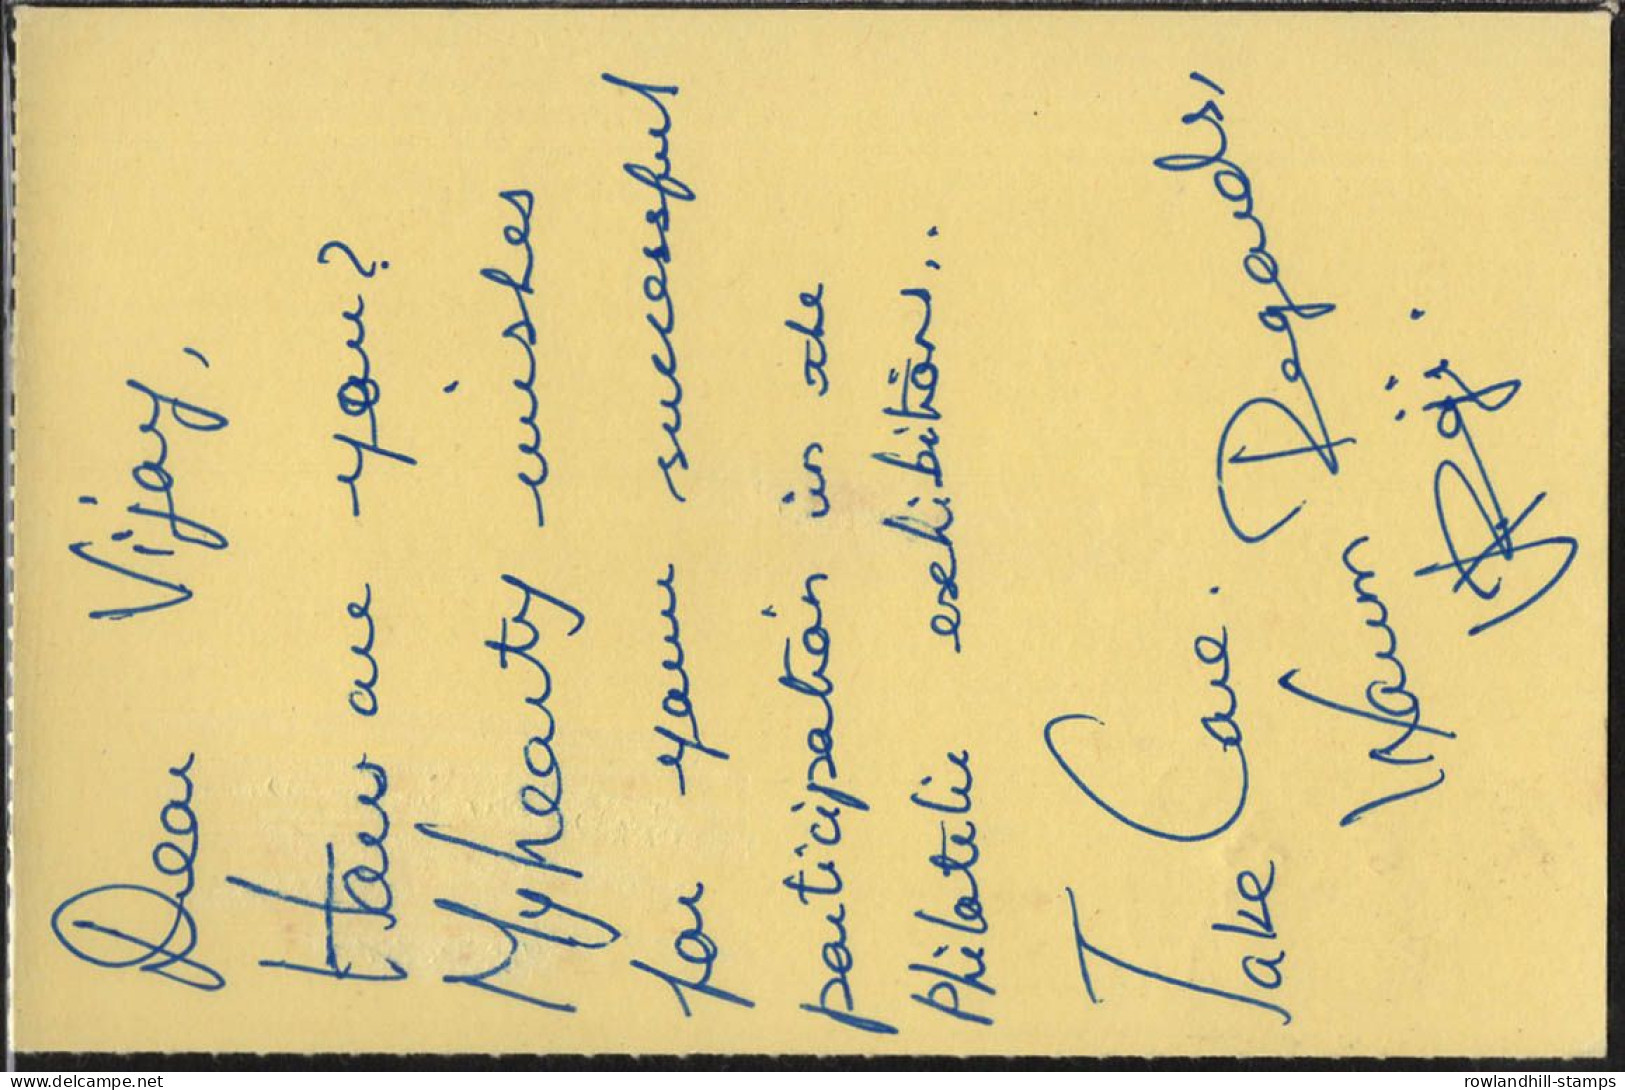 Dear Vijay,
How are you?
My hearty wishes
for your successful
participation in the
Philatelic exhibitions..
Take Care.
Warm Regards,
Raji.
delcampe.net
rowlandhill-stamps